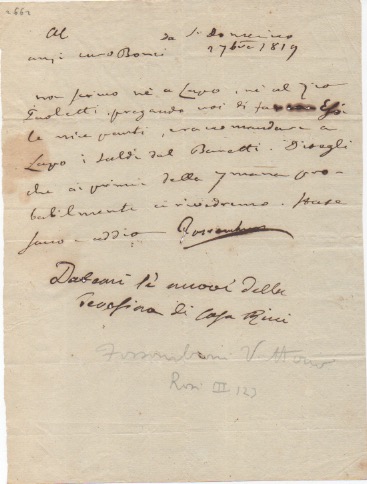 2662
Al da S. Domenico
amico Bonci 27 bre 1819
non scrivo nè a Lapo, nè al Zio
Paoletti, pregando voi di far
le mie parti, raccomandare a
Lapo i saldi del Baretti. Ditegli
che ai primi della 7mana pro-
babilmente ci rivedremo. State
sano e addio Fossombroni
Datemi le nuove della
di Casa Ricci
Fossombroni Vittorio
Rosi III 123